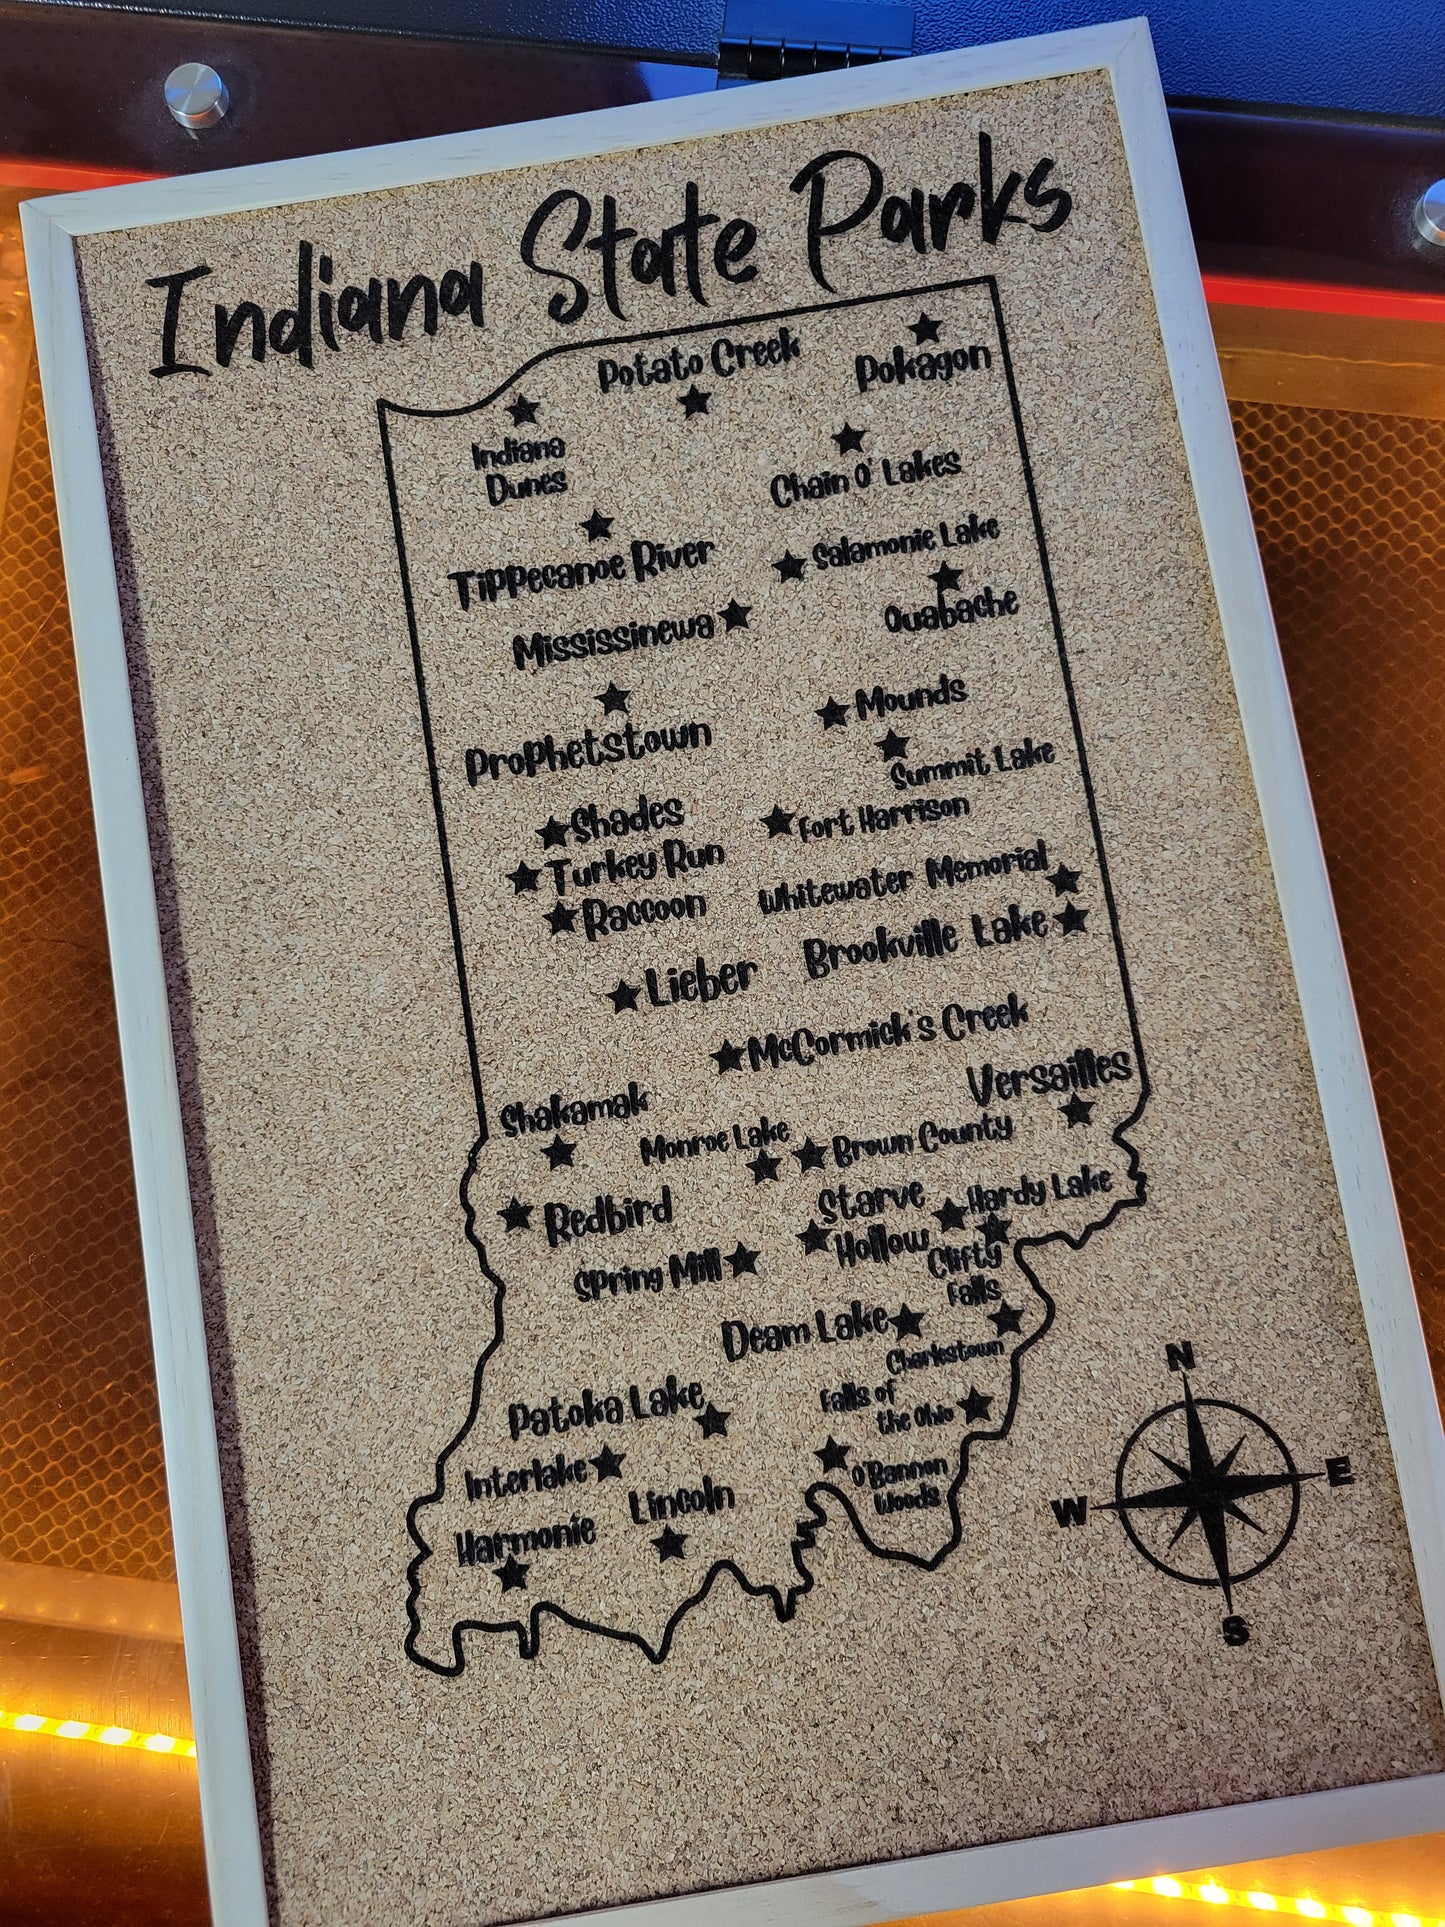 Indiana State Parks
Potato Creek
Pokagon
Indiana
Dunes
Chain O' Lakes
Tippecanoe River
Salamonie Lake
Ouabache
Mississinewa
Mounds
Prophetstown
Summit Lake
Shades
Fort Harrison
Turkey Run
Whitewater Memorial
Raccoon
Brookville Lake
Lieber
McCormick's Creek
Versailles
Shakamak
Monroe Lake
Brown County
Redbird
Starve
Hollow
Hardy Lake
Spring Mill
Clifty
Falls
Deam Lake
Charlestown
Patoka Lake
Falls of
the Ohio
Interlake
O'Bannon
Woods
Lincoln
Harmonie
N
E
W
S